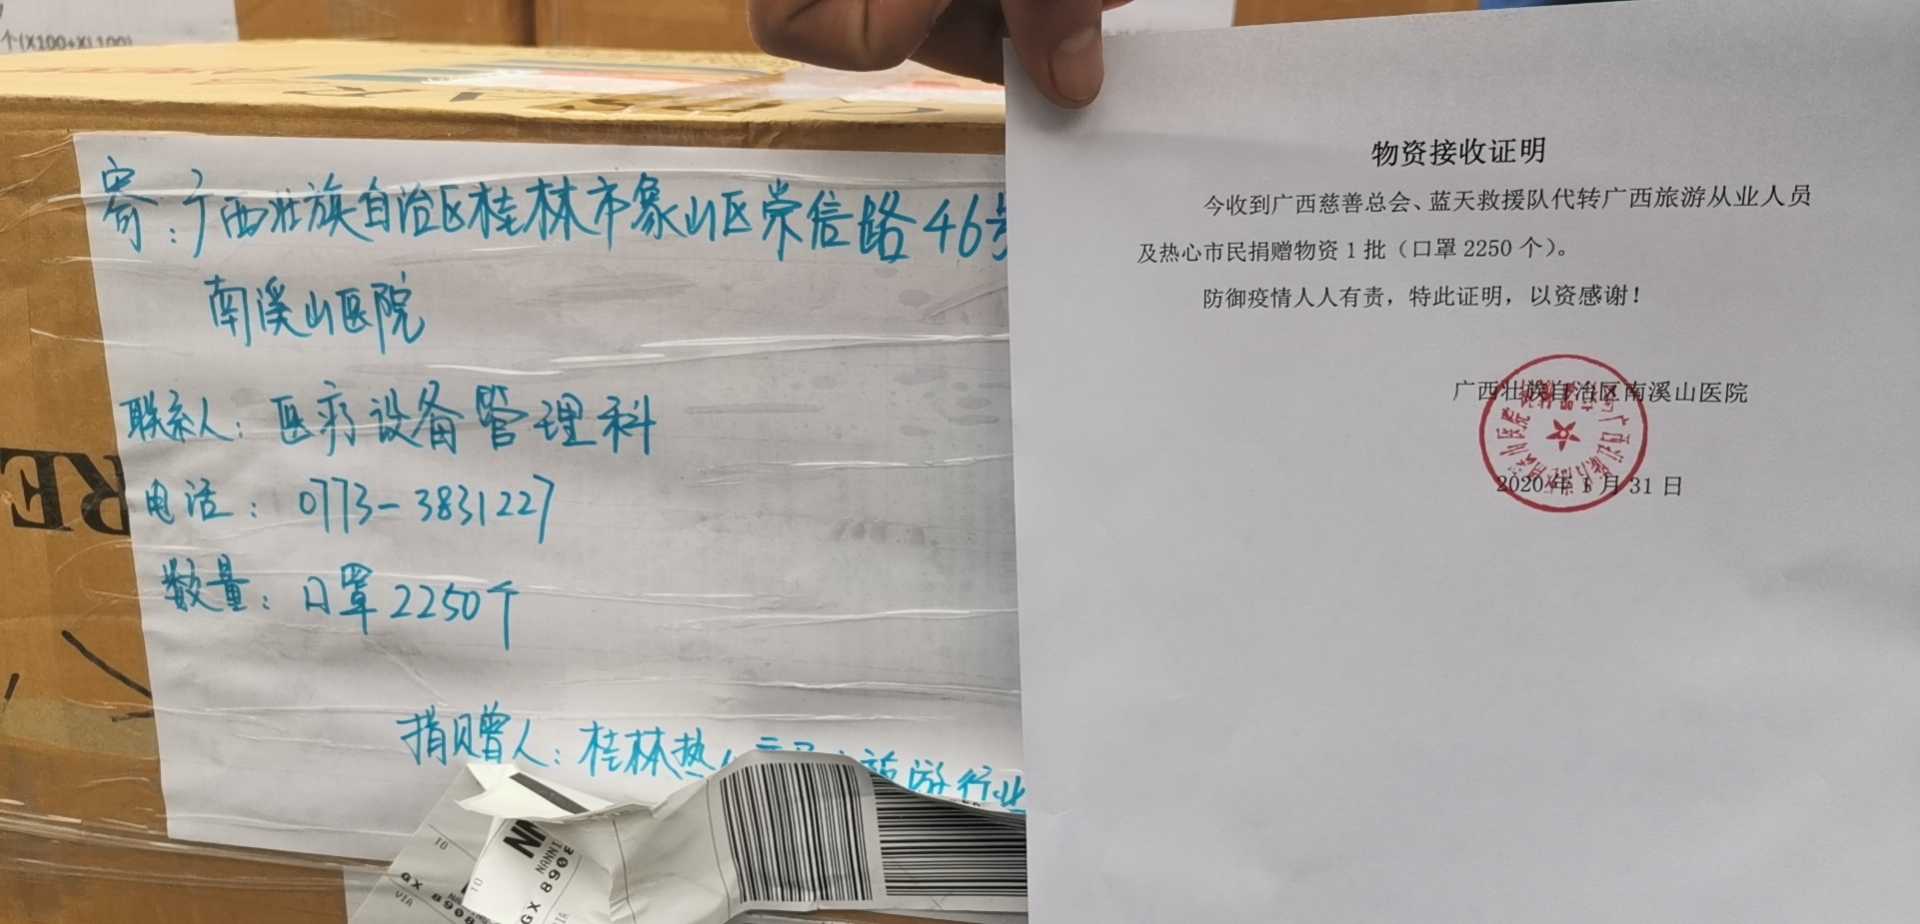 个(X100+XL100)
寄：广西壮族自治区桂林市象山区崇信路46号
南溪山医院
联系人：医疗设备管理科
电话：0773-3831227
数量：口罩2250个
捐赠人：桂林热心市民 旅游行业
RE
NN
NANNI
GX 8908
TO
VIA
GX 8908
VIA
物资接收证明
今收到广西慈善总会、蓝天救援队代转广西旅游从业人员
及热心市民捐赠物资 1 批（口罩 2250 个）。
防御疫情人人有责，特此证明，以资感谢！
广西壮族自治区南溪山医院
2020 年 1 月 31 日